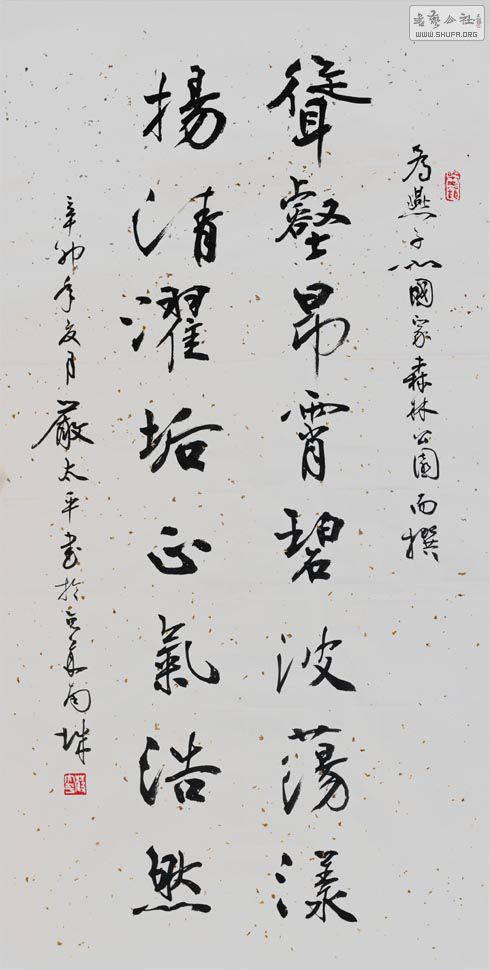 書藝公社
WWW.SHUFA.ORG
為燕子國家森林公園而撰
聳壑昂霄碧波蕩漾
揚清濯垢正氣浩然
辛卯年夏月嚴太平書於京華南城